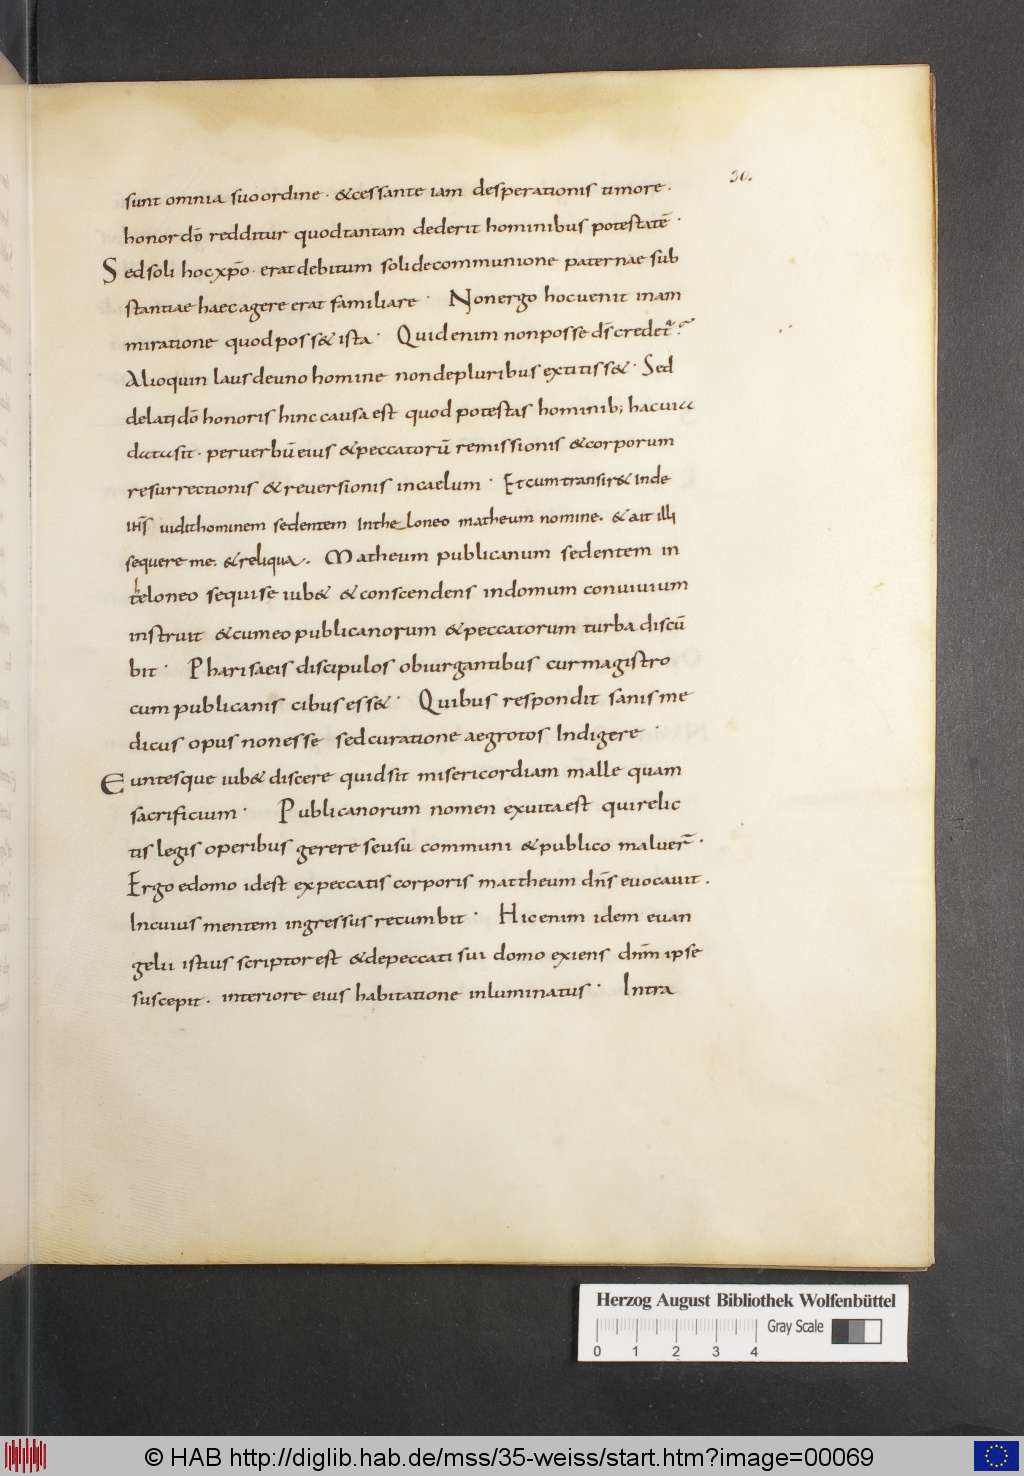 30.
sunt omnia suo ordine · & cessante iam desperationis timore ·
honor dō redditur quod tantam dederit hominibus potestatē ·
Sed soli hoc xp̄o · erat debitum soli de communione paternae sub
stantiae haec agere erat familiare · Non ergo hoc uenit in am
miratione quod poss& ista · Quid enim non posse ds̄ credet̄?
Alioquin laus de uno homine non de pluribus extitiss& · Sed
delati dō honoris hinc causa est quod potestas hominib; hac uia
data sit · per uerbū eius & peccatorū remissionis & corporum
resurrectionis & reuersionis in caelum · Et cum transir& inde
ihs̄ uidit hominem sedentem in theloneo matheum nomine. & ait illi
sequere me. & reliqua. Matheum publicanum sedentem in
teloneo sequi se iub& & conscendens in domum conuiuium
instruit & cum eo publicanorum & peccatorum turba discū
bit · Pharisaeis discipulos obiurgantibus cur magistro
cum publicanis cibus ess& · Quibus respondit sanis me
dicus opus non esse sed curatione aegrotos Indigere ·
Euntesque iub& discere quid sit misericordiam malle quam
sacrificium · Publicanorum nomen ex uita est qui relic
tis legis operibus gerere se usu communi & publico maluer̄ ·
Ergo e domo id est ex peccatis corporis mattheum dn̄s euocauit .
In cuius mentem ingressus recumbit · Hic enim idem euan
gelii istius scriptor est & de peccati sui domo exiens dn̄m ipse
suscepit . interiore eius habitatione inluminatus · Intra
Herzog August Bibliothek Wolfenbüttel
Gray Scale
0 1 2 3 4
© HAB http://diglib.hab.de/mss/35-weiss/start.htm?image=00069